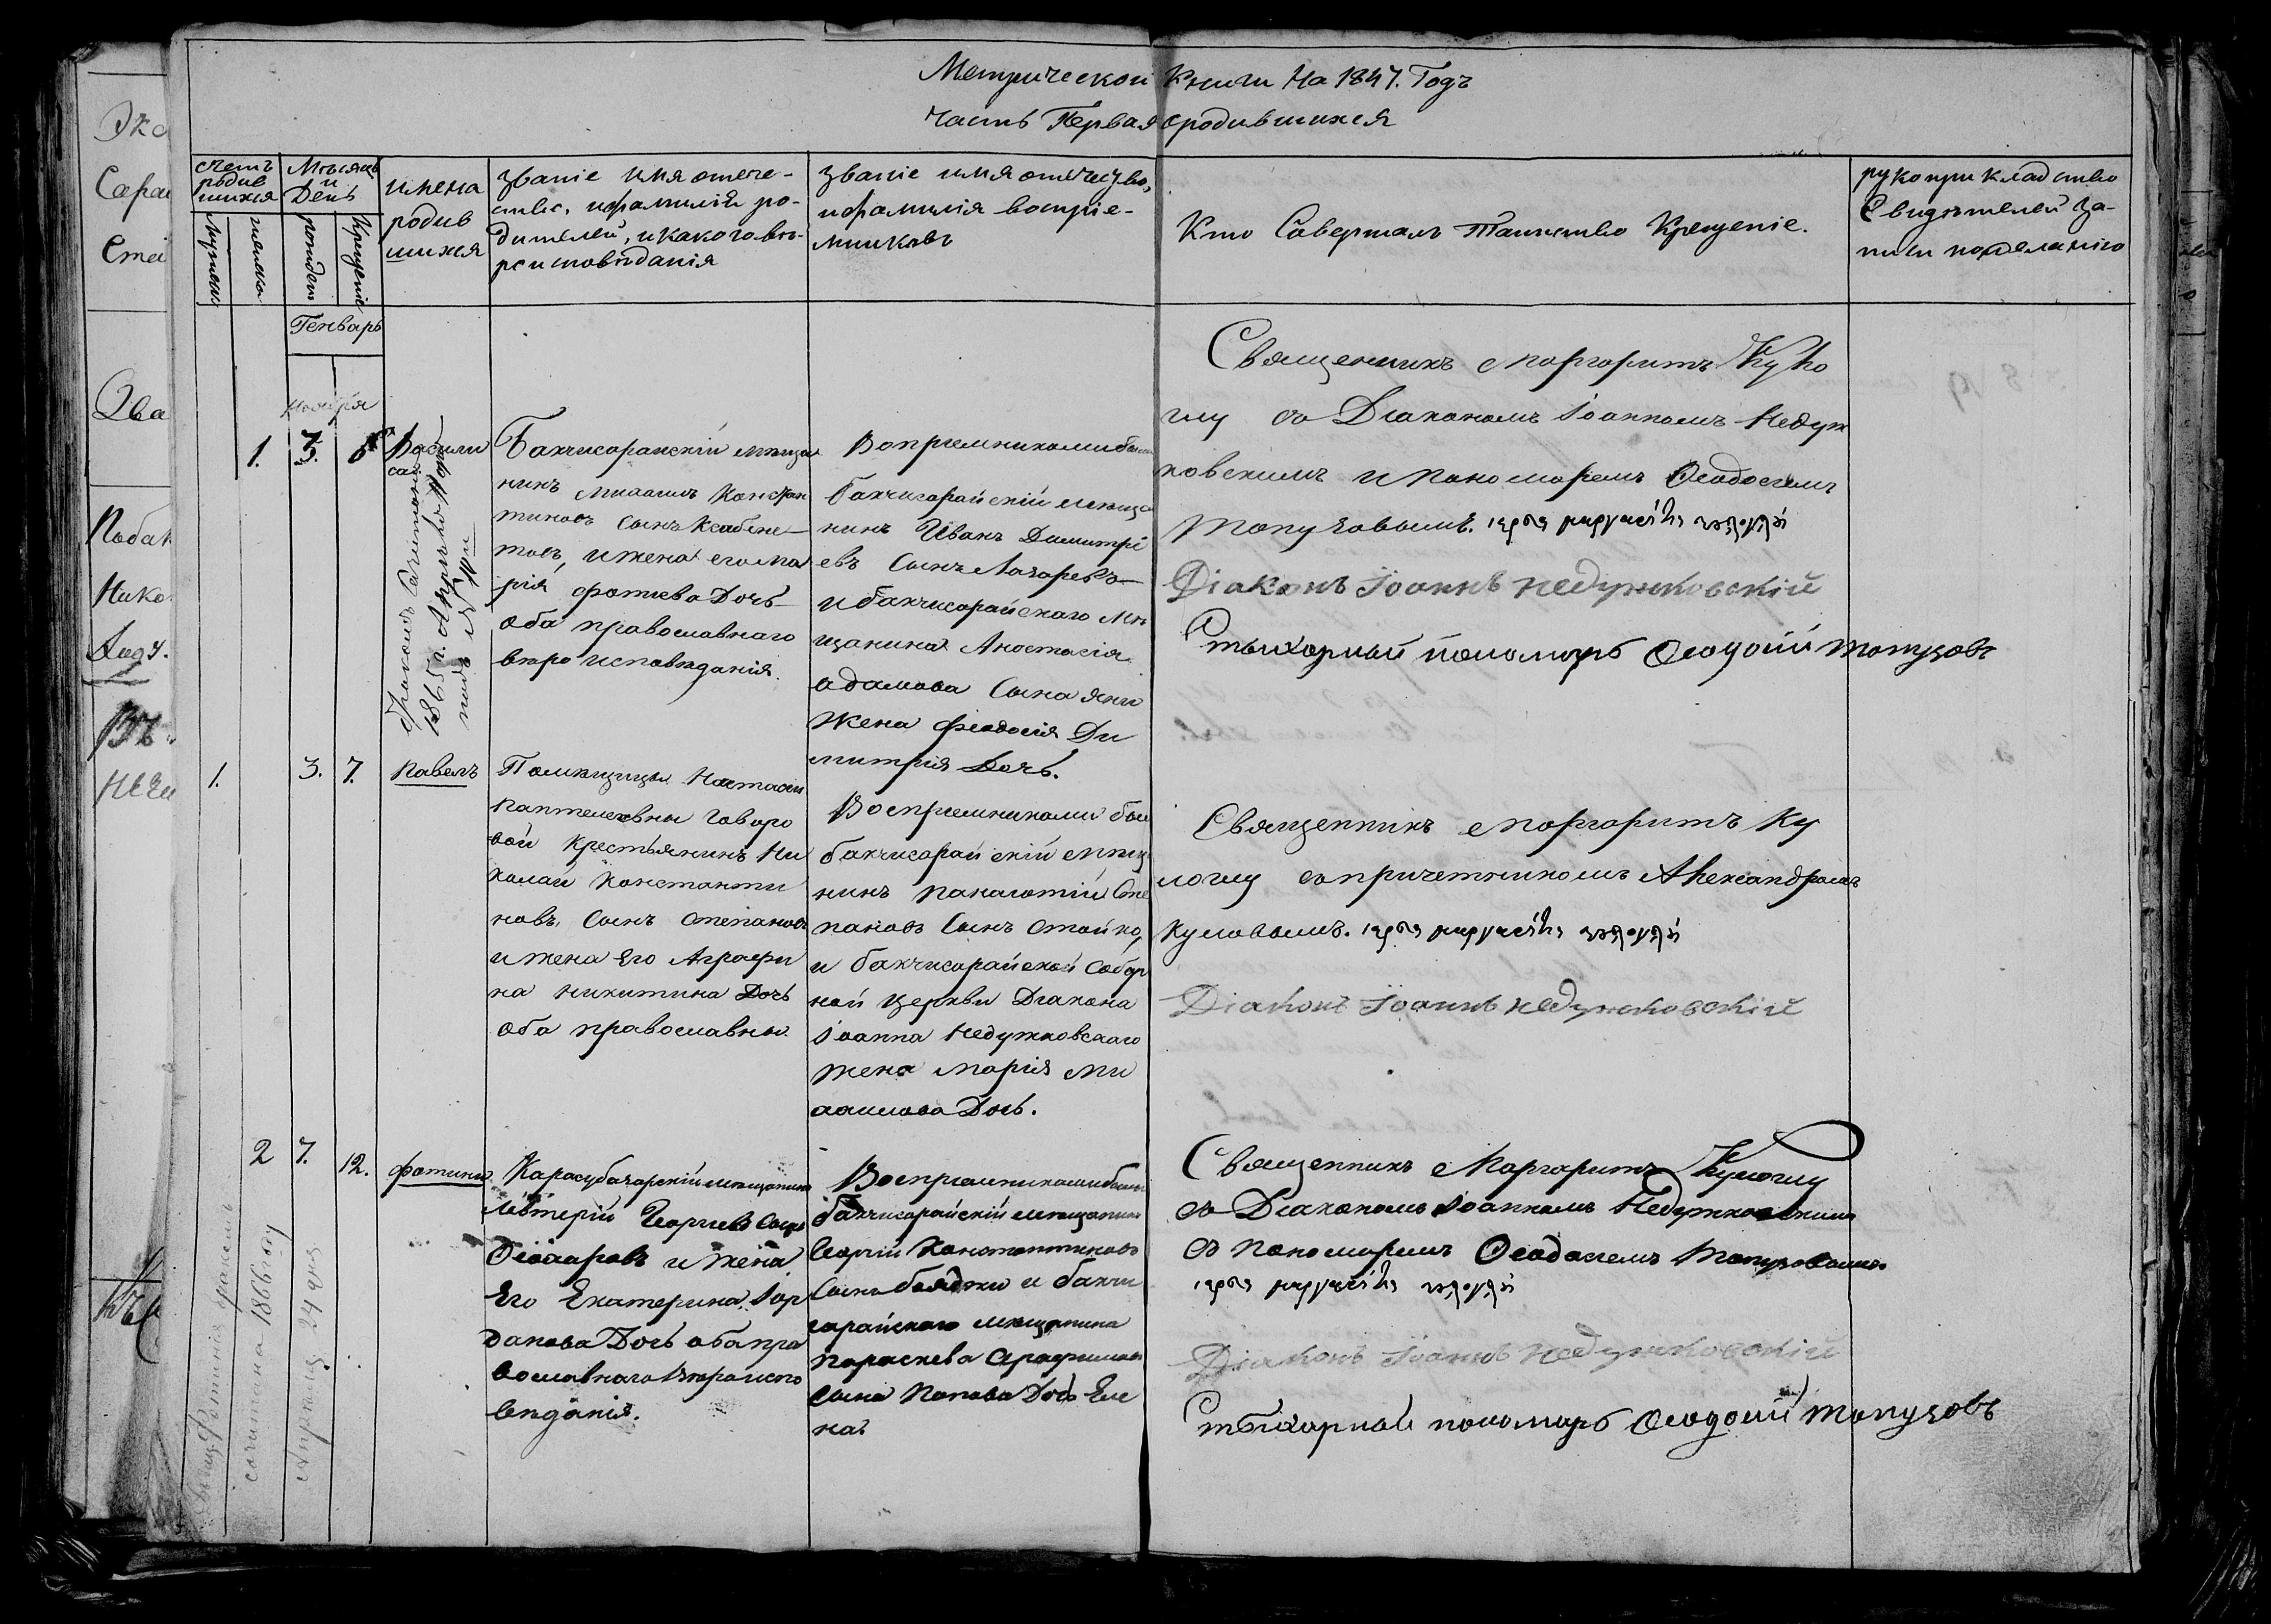 Метрической Книги На 1847. Годъ
Часть Первая о родившихся
счетъ родив шихся
Мѣсяцъ и День
имена родив шихся
званіе имя отече-
ство, и фамилія ро-
дителей, и какого вѣ-
роисповѣданія
званіе имя отечество,
и фамилія воспріе-
мниковъ
Кто Савершалъ Таинство Крещеніе.
рукоприкладство
Свидѣтелей за-
писи по желанію
Генварь
1. 3. Васили
са
Бракомъ Сочетана
1865 г. Апрѣля
Бахчисарайскій мѣща
нинъ Михаилъ Констан
тиновъ Сынъ
и жена его Ма
рія Фотиева Дочь
оба православнаго
вѣроисповѣданія.
Воспріемниками были
бахчисарайскій мѣща
нинъ Иванъ Димитрі
евъ Сынъ Лазаревъ
и бахчисарайскаго мѣ
щанина Анастасія
адамова Сына
жена Феодосія Ди
митрія Дочь.
Священникъ Маргаритъ Куло
глу со Діакономъ Іоанномъ Недуж
ковскимъ и пономаремъ Феодосіемъ
Топузовымъ.
Діаконъ Іоаннъ Недужковскій
Стыхарный пономарь Феодосій Топузовъ
1. 3. 7. Павелъ
Помѣщицы Настасіи
Пантелеевны Говоро
вой крестьянинъ Ни
колай Константи
новъ Сынъ Степановъ
и жена Его Аграфи
на Никитина Дочь
оба православны.
Воспріемниками были
бахчисарайскій мѣща
нинъ Панаіотій Сте
пановъ Сынъ Стойко,
и бахчисарайской Собор
ной Церкви Діакона
Іоанна Недужковскаго
жена Марія Ми
хаилова Дочь.
Священникъ Маргаритъ Ку
логлу со причетникомъ Александромъ
Кумовымъ.
Діаконъ Іоаннъ Недужковскій
2 7. 12. Фотинія
Карасубазарскій мѣщанинъ
Георгіевъ Сынъ
и жена
Его Екатерина Іор
данова Дочь оба пра
вославнаго вѣроиспо
вѣданія.
Воспріемниками были
бахчисарайскій мѣщанинъ
Георгій Константиновъ
Сынъ бояджи и бахчи
сарайскаго мѣщанина
Параскева Серафимова
Сына Попова Дочь Еле
на
Священникъ Маргаритъ Кулоглу
со Діакономъ Іоанномъ Недужковскимъ
съ пономаремъ Феодосіемъ Топузовымъ
Діаконъ Іоаннъ Недужковскій
Стыхарный пономарь Феодосій Топузовъ
Фотинія бракомъ
сочетана 1866 году
Апрѣля 24 дня